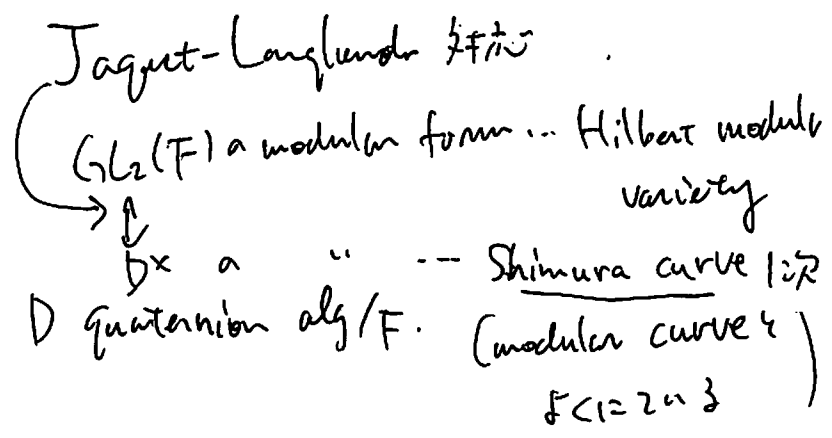 Jaquet-Langlands 対応.
GL₂(F) の modular form … Hilbert modular
variety
↕
D× の 〃 … Shimura curve 1次
D quaternion alg/F. (modular curve と
よくにている)